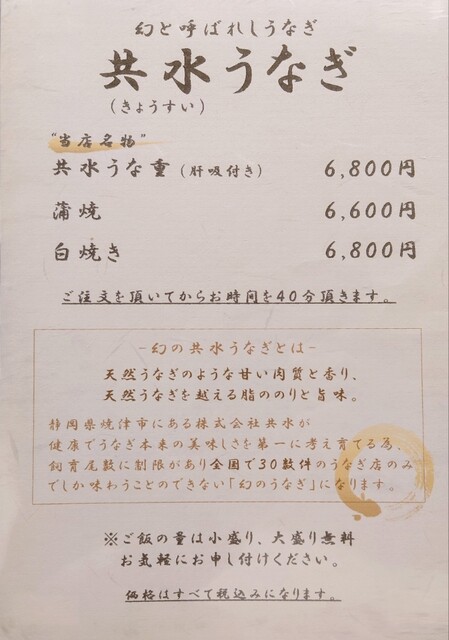 幻と呼ばれしうなぎ
共水うなぎ
(きょうすい)
"当店名物"
共水うな重(肝吸付き) 6,800円
蒲焼 6,600円
白焼き 6,800円
ご注文を頂いてからお時間を40分頂きます。
-幻の共水うなぎとは-
天然うなぎのような甘い肉質と香り、
天然うなぎを越える脂ののりと旨味。
静岡県焼津市にある株式会社共水が
健康でうなぎ本来の美味しさを第一に考え育てる為、
飼育尾数に制限があり全国で30数件のうなぎ店のみ
でしか味わうことのできない「幻のうなぎ」になります。
※ご飯の量は小盛り、大盛り無料
お気軽にお申し付けください。
価格はすべて税込みになります。